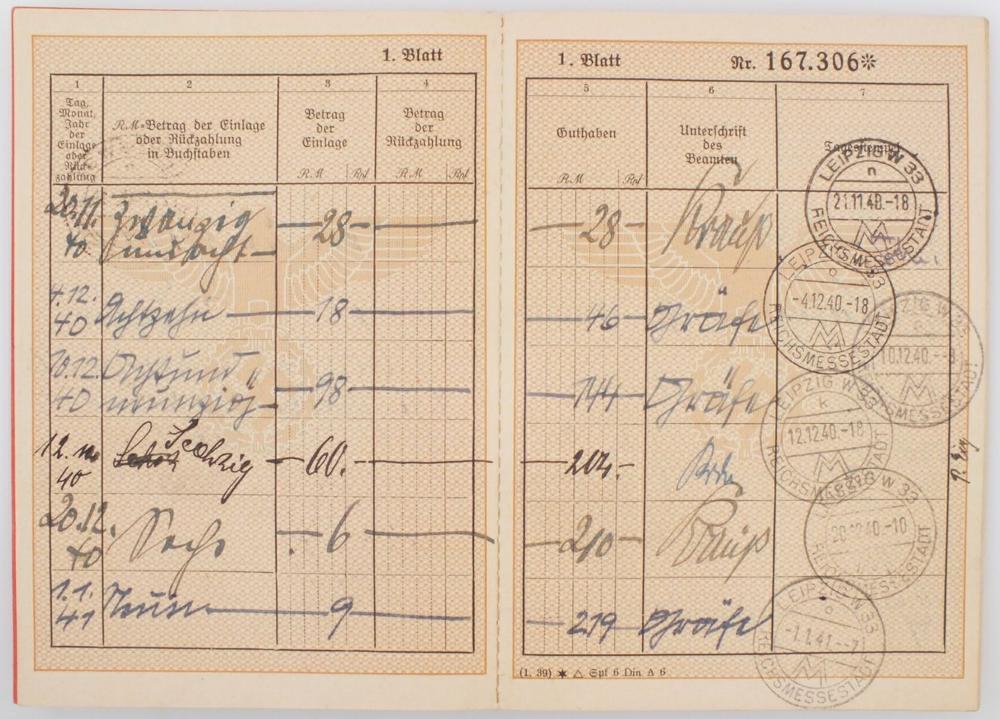 1. Blatt
1
2
3
4
Tag,
Monat,
Jahr
der
Einlage
oder
Rück-
zahlung
R.M-Betrag der Einlage
oder Rückzahlung
in Buchstaben
Betrag
der
Einlage
R.M Rpf
Betrag
der
Rückzahlung
R.M Rpf
20.11. Zwanzig — 28 —
40 undacht
4.12. Achtzehn — 18 —
40
10.12. Achtund — 98 —
40 neunzig
12. 40 Sechzig — 60. —
20.12. Sechs — 6 —
40
1.1. Neun — 9 —
41
1. Blatt Nr. 167.306*
5
6
7
Guthaben
R.M Rpf
Unterschrift
des
Beamten
Tagesstempel
— 28 — Krauß
— 46 — Gräfe
— 144 — Gräfe
— 204. —
— 210 — Krauß
— 219 — Gräfe
LEIPZIG W 33
n
21.11.40.-18
REICHSMESSESTADT
LEIPZIG W 33
o
-4.12.40.-18
REICHSMESSESTADT
LEIPZIG W 33
10.12.40.--8
REICHSMESSESTADT
LEIPZIG W 33
k
12.12.40.-18
REICHSMESSESTADT
LEIPZIG W 33
20.12.40.-10
REICHSMESSESTADT
LEIPZIG W 33
o
-1.1.41.--7
REICHSMESSESTADT
(1. 39) ✶ △ Spf 6 Din A 6